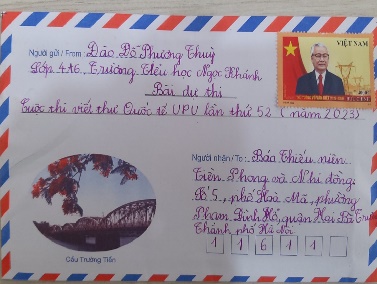 Người gửi / From: Đào Đỗ Phương Thuỳ
Lớp 4A6, Trường Tiểu học Ngọc Khánh
Bài dự thi
Cuộc thi viết thư Quốc tế UPU lần thứ 52 (năm 2023)
VIỆT NAM
Người nhận / To: Báo Thiếu niên
Tiền Phong và Nhi đồng.
Số 5, phố Hoà Mã, phường
Phạm Đình Hổ, quận Hai Bà Trưng
Thành phố Hà Nội
1 1 6 1 1
Cầu Trường Tiền